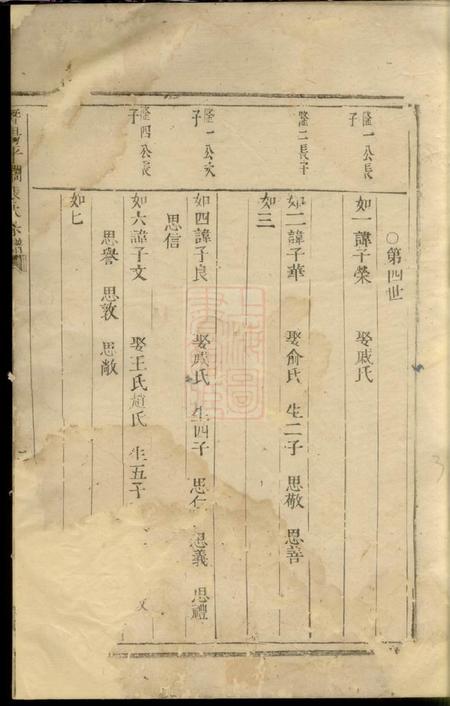 ○第四世
隆一公長子
如一諱子榮 娶戚氏
隆二長子
如二諱子華 娶俞氏 生二子 思敬 思善
如三
隆一公次子
如四諱子良 娶戚氏 生四子 思仁 思義 思禮
思信
隆四公長子
如六諱子文 娶王氏趙氏 生五子
思譽 思敦 思敞
如七